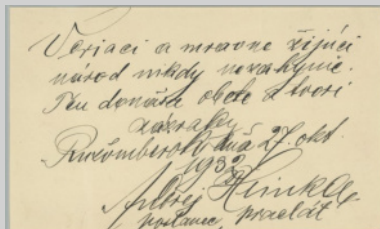 Veriaci a mravne žijúci
národ nikdy nezahynie.
Ten donáša obete a tvorí
zázraky.
Ružomberok dňa 27. okt.
1932
Andrej Hlinka
poslanec, prelát